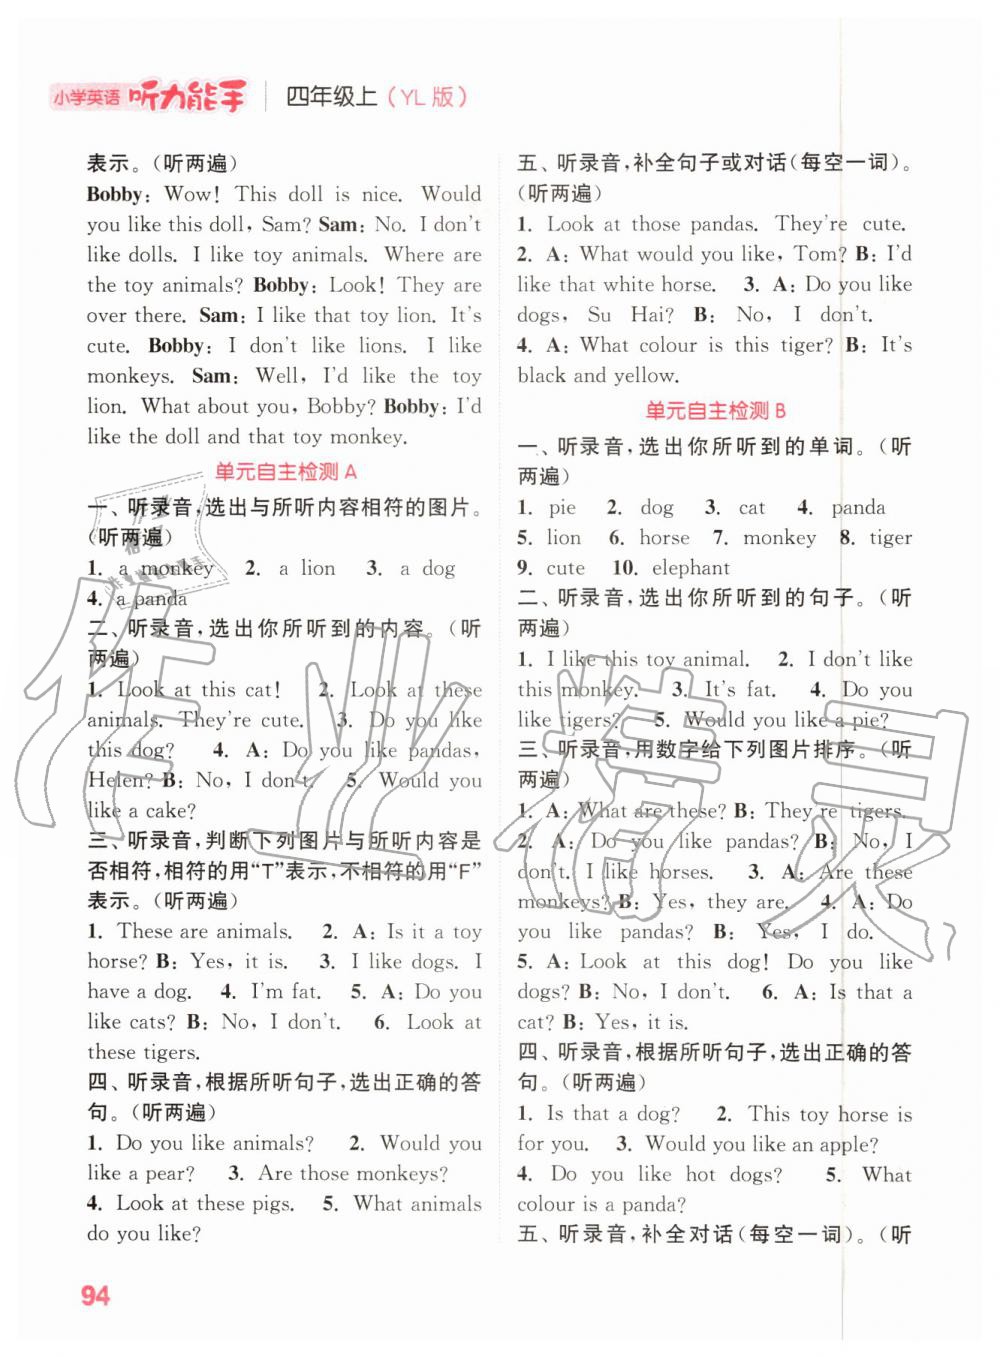 小学英语 听力能手 四年级上（YL版）
表示。（听两遍）
Bobby: Wow! This doll is nice. Would
you like this doll, Sam? Sam: No. I don't
like dolls. I like toy animals. Where are
the toy animals? Bobby: Look! They are
over there. Sam: I like that toy lion. It's
cute. Bobby: I don't like lions. I like
monkeys. Sam: Well, I'd like the toy
lion. What about you, Bobby? Bobby: I'd
like the doll and that toy monkey.
单元自主检测A
一、听录音,选出与所听内容相符的图片。
（听两遍）
1. a monkey 2. a lion 3. a dog
4. a panda
二、听录音,选出你所听到的内容。（听
两遍）
1. Look at this cat! 2. Look at these
animals. They're cute. 3. Do you like
this dog? 4. A: Do you like pandas,
Helen? B: No, I don't. 5. Would you
like a cake?
三、听录音,判断下列图片与所听内容是
否相符,相符的用“T”表示,不相符的用“F”
表示。（听两遍）
1. These are animals. 2. A: Is it a toy
horse? B: Yes, it is. 3. I like dogs. I
have a dog. 4. I'm fat. 5. A: Do you
like cats? B: No, I don't. 6. Look at
these tigers.
四、听录音,根据所听句子,选出正确的答
句。（听两遍）
1. Do you like animals? 2. Would you
like a pear? 3. Are those monkeys?
4. Look at these pigs. 5. What animals
do you like?
五、听录音,补全句子或对话（每空一词）。
（听两遍）
1. Look at those pandas. They're cute.
2. A: What would you like, Tom? B: I'd
like that white horse. 3. A: Do you like
dogs, Su Hai? B: No, I don't.
4. A: What colour is this tiger? B: It's
black and yellow.
单元自主检测B
一、听录音,选出你所听到的单词。（听
两遍）
1. pie 2. dog 3. cat 4. panda
5. lion 6. horse 7. monkey 8. tiger
9. cute 10. elephant
二、听录音,选出你所听到的句子。（听
两遍）
1. I like this toy animal. 2. I don't like
this monkey. 3. It's fat. 4. Do you
like tigers? 5. Would you like a pie?
三、听录音,用数字给下列图片排序。（听
两遍）
1. A: What are these? B: They're tigers.
2. A: Do you like pandas? B: No, I
don't. I like horses. 3. A: Are these
monkeys? B: Yes, they are. 4. A: Do
you like pandas? B: Yes, I do.
5. A: Look at this dog! Do you like
dogs? B: No, I don't. 6. A: Is that a
cat? B: Yes, it is.
四、听录音,根据所听句子,选出正确的答
句。（听两遍）
1. Is that a dog? 2. This toy horse is
for you. 3. Would you like an apple?
4. Do you like hot dogs? 5. What
colour is a panda?
五、听录音,补全对话（每空一词）。（听
94
作业精灵